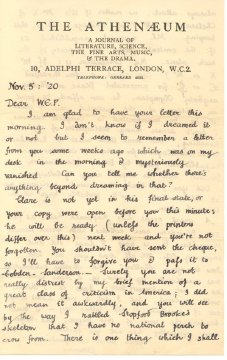 THE ATHENÆUM
A JOURNAL OF
LITERATURE, SCIENCE,
THE FINE ARTS, MUSIC,
& THE DRAMA.
10, ADELPHI TERRACE, LONDON, W.C.2.
TELEPHONE: GERRARD
Nov. 5: '20
Dear W.E.P.
I am glad to have your letter this
morning. I don't know if I dreamed it
or not but I seem to remember a letter
from you some weeks ago which was on my
desk in the morning & mysteriously
vanished. Can you tell me whether there's
anything beyond dreaming in that?
Clare is not yet in his final state, or
your copy were open before you this minute:
he will be ready (unless the printers
differ over this) next week and you're not
forgotten. You shouldn't have sent the cheque,
so I'll have to forgive you & pass it to
Cobden-Sanderson. — Surely you are not
really distrest by my brief mention of a
great class of criticism in America; I did
not mean it awkwardly, and you will see
by the way I rattled Stopford Brooke's
skeleton that I have no national perch to
crow from. There is one thing which I shall